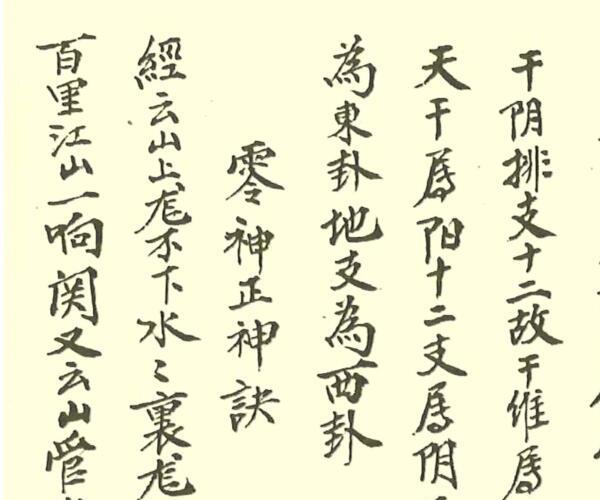 干阴排支十二故干维為
天干為阳十二支為阴
為東卦地支為西卦
零神正神訣
經云山上龙不下水〻裏龙
百里江山一响関又云山管